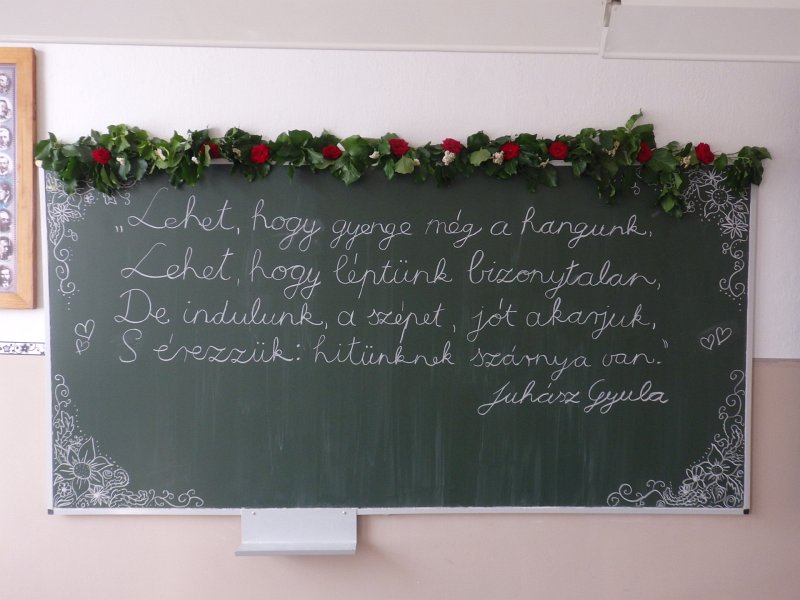 „Lehet, hogy gyenge még a hangunk,
Lehet, hogy léptünk bizonytalan,
De indulunk, a szépet, jót akarjuk,
S érezzük: hitünknek szárnya van."
Juhász Gyula